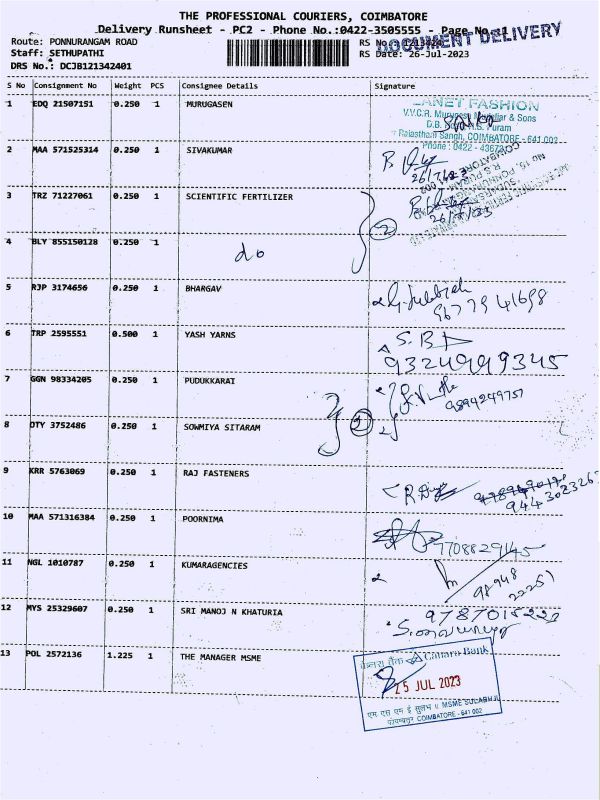 THE PROFESSIONAL COURIERS, COIMBATORE
Delivery Runsheet - PC2 - Phone No.:0422-3505555 - Page No.:1
DOCUMENT DELIVERY
Route: PONNURANGAM ROAD
Staff: SETHUPATHI
RS Date: 26-Jul-2023
DRS No.: DCJB121342401
S No Consignment No Weight PCS Consignee Details Signature
1 EDQ 21507151 0.250 1 MURUGASEN
PLANET FASHION
V.V.C.R. Murugesa Mudaliar & Sons
D.B. Road, R.S. Puram
Rajasthani Sangh, COIMBATORE - 641 002
Phone : 0422 -
2 MAA 571525314 0.250 1 SIVAKUMAR
3 TRZ 71227061 0.250 1 SCIENTIFIC FERTILIZER
2
4 BLY 855150128 0.250 1 do
5 RJP 3174656 0.250 1 BHARGAV
96779 41698
6 TRP 2595551 0.500 1 YASH YARNS
S. B
9324999345
7 GGN 98334205 0.250 1 PUDUKKARAI
9894249757
2
8 OTY 3752486 0.250 1 SOWMIYA SITARAM
9 KRR 5763069 0.250 1 RAJ FASTENERS
10 MAA 571316384 0.250 1 POORNIMA
9708829145
11 NGL 1010787 0.250 1 KUMARAGENCIES
98948
22251
12 MYS 25329607 0.250 1 SRI MANOJ N KHATURIA
13 POL 2572136 1.225 1 THE MANAGER MSME
केनरा बैंक Canara Bank
25 JUL 2023
एम एस एम ई सुलभ / MSME SULABH
कोयम्बत्तूर COIMBATORE - 641 002